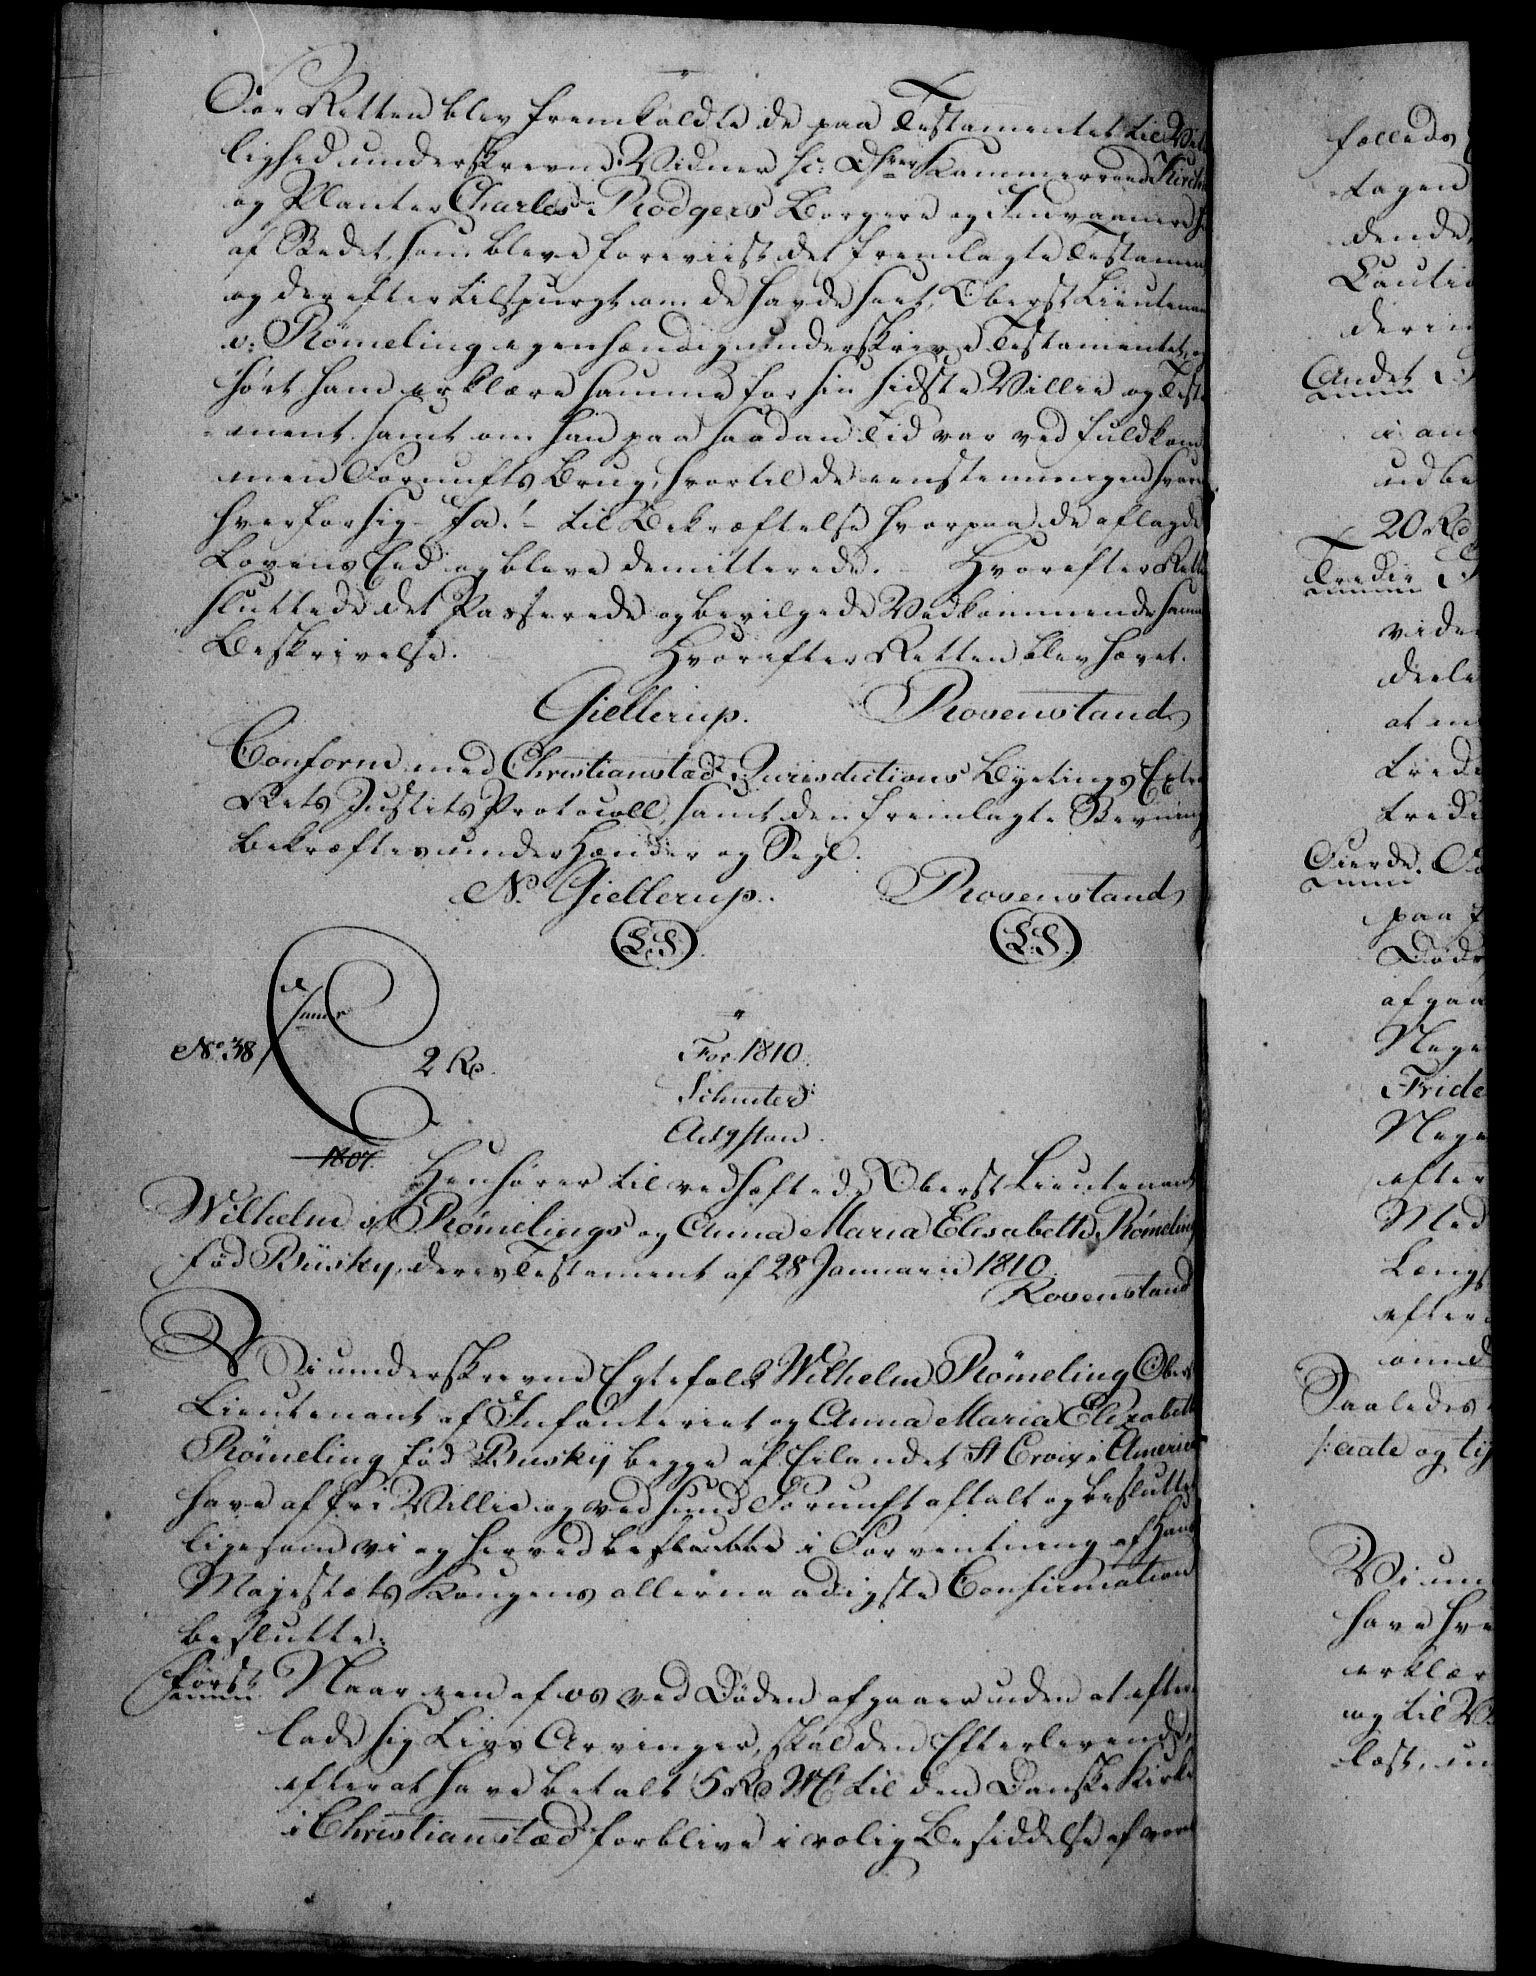 For Retten blev fremkaldte de paa Testamentet til Vit
lighed underskrevne Vidner Sc: Dhrr Kammerraad Kirch
og Planter Charles Rodgers Borgere og Indvaanere h
af Stedet, som bleve foreviist det fremlagte Testamen
og derefter tilspurgt om de havde seet, Oberst Lieutenan
v: Römeling egenhændig underskrive Testamentet, og
hört ham erklære samme for sin sidste Villie og Testa
ment. samt om han paa saadan Tid var ved fuldkom
men Fornufts Brug, hvortil de eenstemmigen svare
hver for sig – Ja! – til Bekræftelse hvorpaa de aflagde
Lovens Eed og bleve demitterede. – Hvorefter Rette
sluttede det Passerede og bevilgede Vedkommende samme
Beskrivelse. Hvorefter Retten blev hævet.
Giellerup. Rovenstand
Conform med Christianstæd Jurisdictions Byetings Extra
Rets Justits Protocoll, samt den fremlagte
bekræftes under Hænder og Segl.
N. Giellerup. Rovenstand
(L.S.) (L.S.)
No. 38 2 Rd.
For 1810.
Schuter
1807.
Henhörer til vedhæftede Oberst Lieutenant
Wilhelm v Römelings og Anna Maria Elisabeth Römeling
föd Büsky, deres Testament af 28 Januarii 1810.
Rovenstand
Vi underskrevne Egtefolk Wilhelm Römeling Oberst
Lieutenant af Infanteriet og Anna Maria Elizabeth
Römeling föd Busky begge af Eilandet St Croix i America
have af fri Villie og ved sund Fornuft aftalt og besluttet
ligesom vi og herved beslutte i Forventning af Hans
Majestæts Kongens allernaadigste Confirmation
beslutte:
Först Naar een af os ved Döden afgaaer uden at efter
lade sig Livs Arvinger, skal den Efterlevende,
efter at have betalt 5 Rd WC til den Danske Kirke
i Christianstæd forblive i rolig Besiddelse af vores
fælleds
tagen
dende
Cautio
derim
Andet
i an
udbe
20 Rd
Tredie
vide
deele
at en
tredi
tredi
Fierde. Fo
paa
Döde
afgaa
Nege
Fride
Nege
efter
Med
Længs
efter
Saaledes
Vi un
have hve
erklær
og til V
læst, un